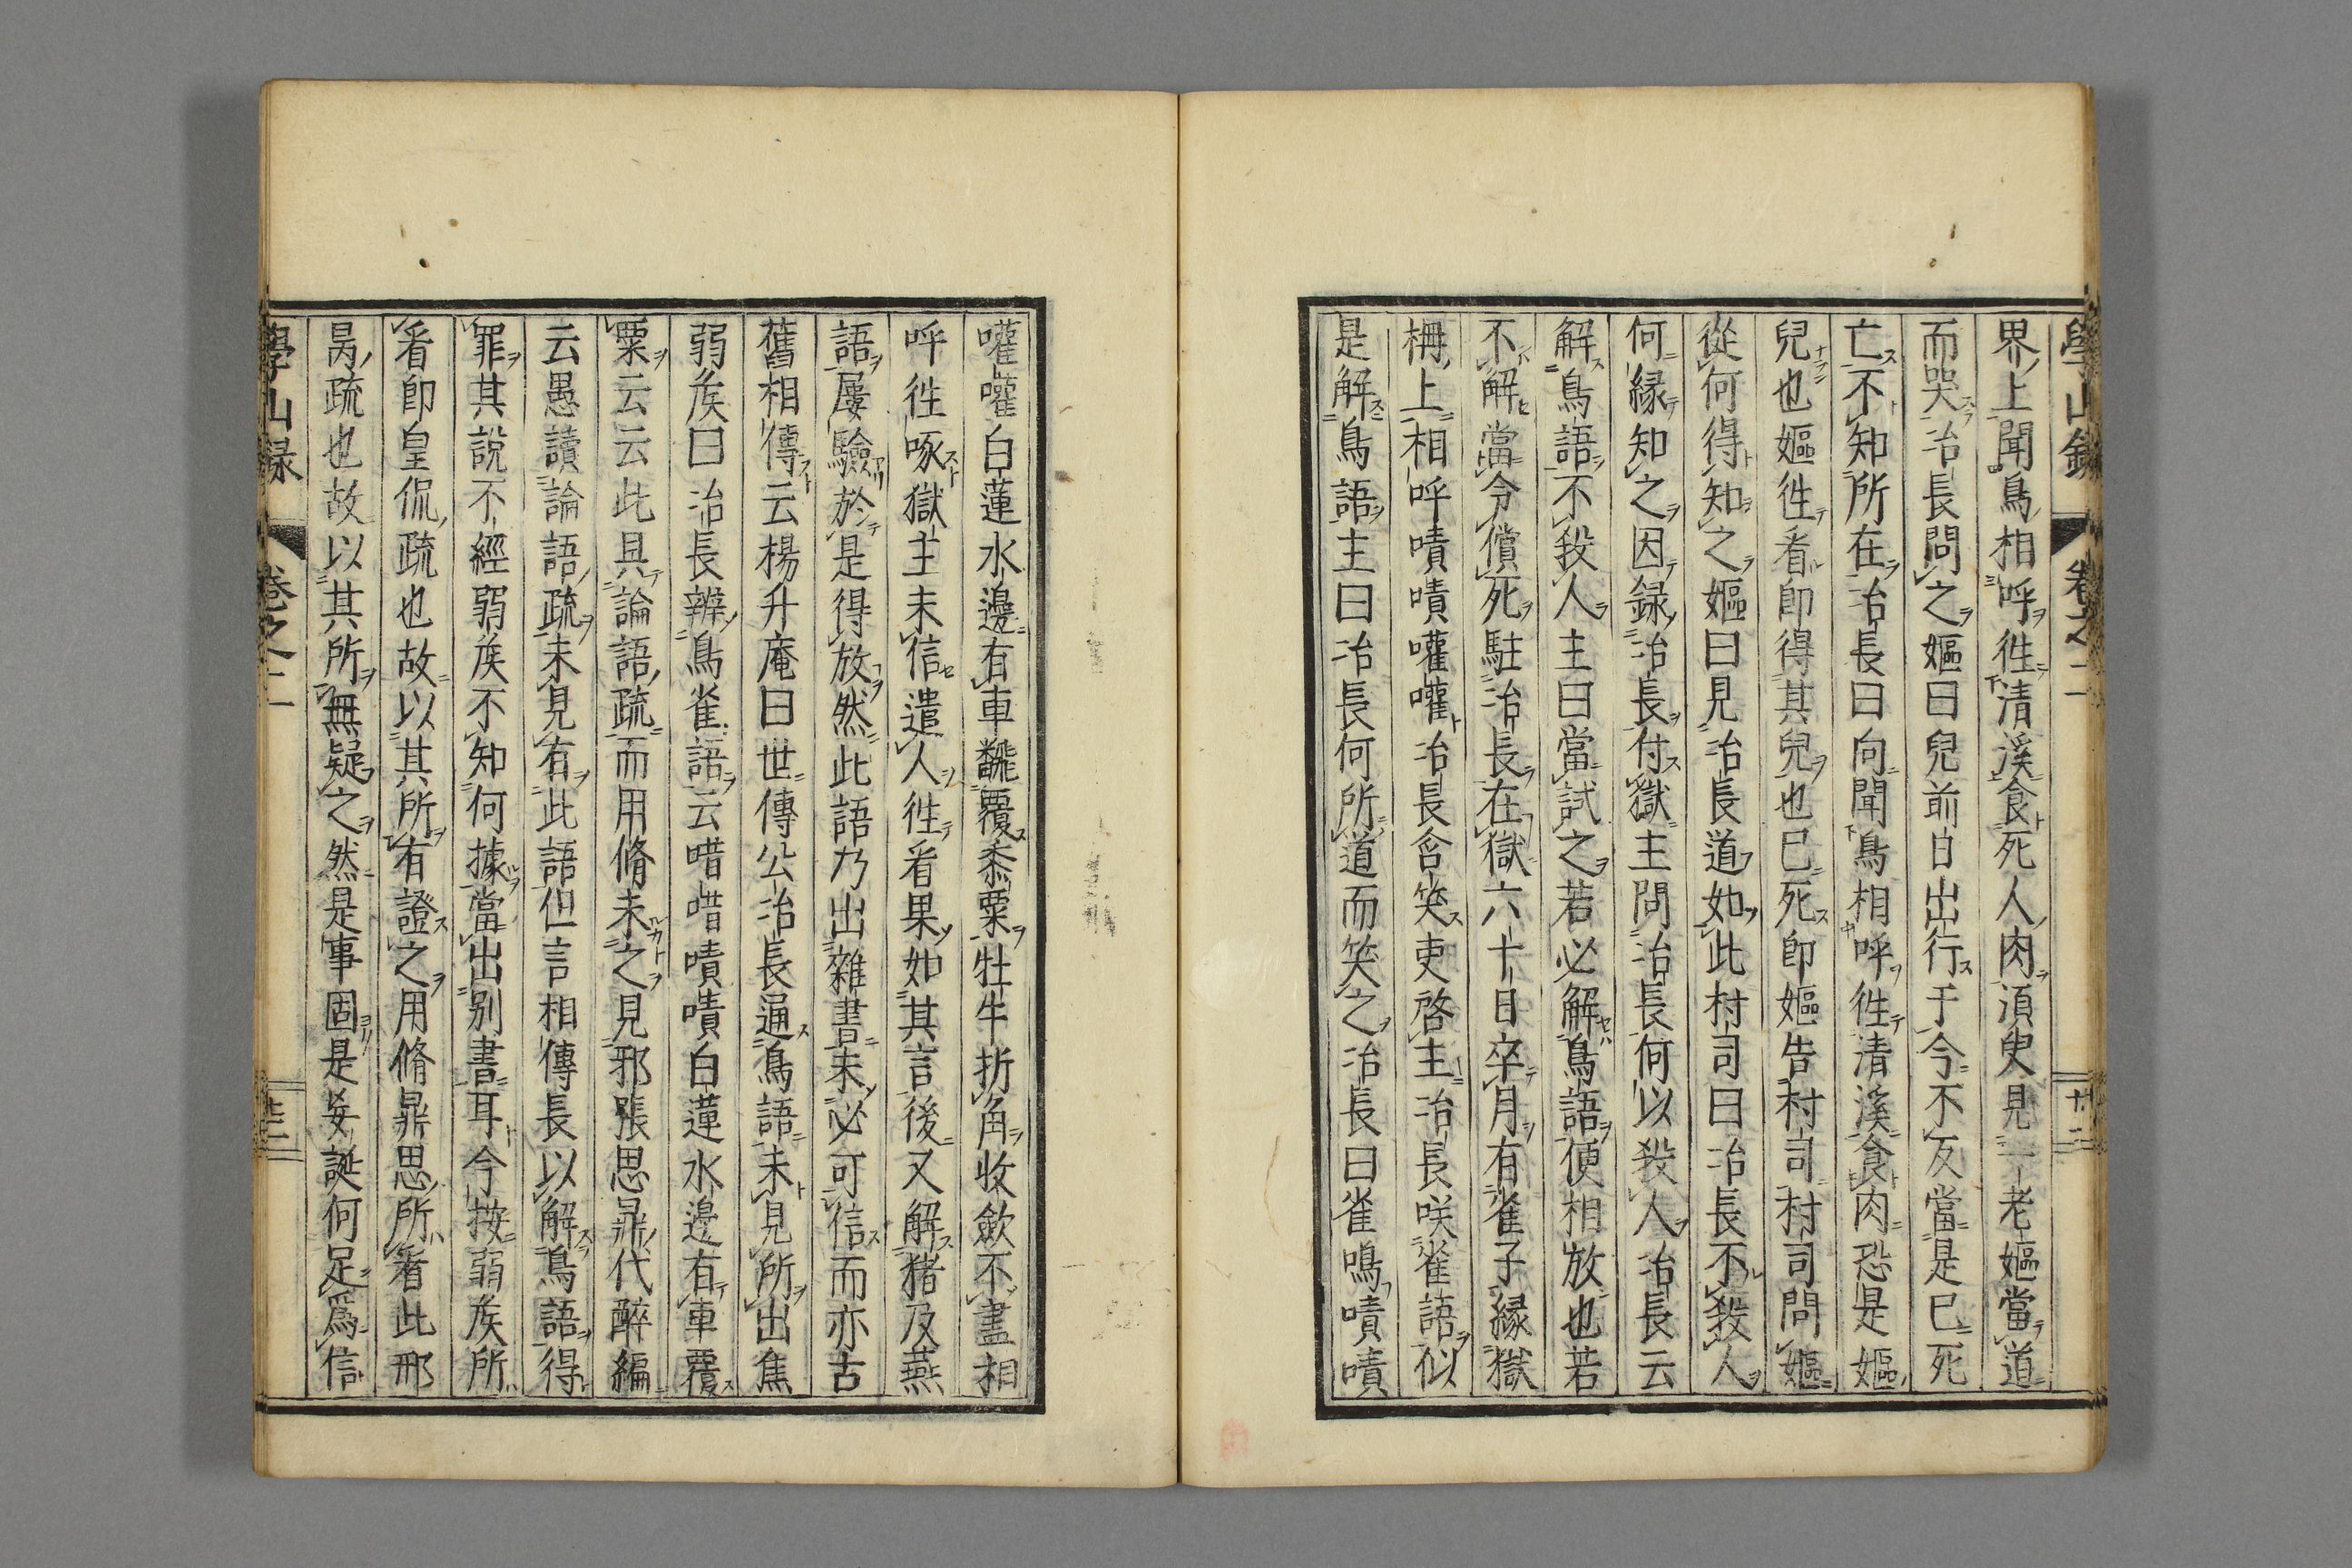 學山錄 卷之二 廿二
界上聞鳥相呼徃清溪食死人肉須臾見一老嫗當道
而哭冶長問之嫗曰兒前日出行于今不反當是巳死
亡不知所在冶長曰向聞鳥相呼徃清溪食肉恐是嫗
兒也嫗徃看即得其兒也巳死即嫗告村司村司問嫗
從何得知之嫗曰見冶長道如此村司曰冶長不殺人
何縁知之因録冶長付獄主問冶長何以殺人冶長云
解鳥語不殺人主曰當試之若必解鳥語便相放也若
不解當令償死駐冶長在獄六十日卒月有雀子縁獄
柵上相呼嘖嘖嚾嚾冶長含笑吏啓主冶長咲雀語似
是解鳥語主曰冶長何所道而笑之冶長曰雀鳴嘖嘖
嚾嚾白蓮水邊有車翻覆黍粟牡牛折角收歛不盡相
呼徃啄獄主未信遣人徃看果如其言後又解猪及燕
語屢驗於是得放然此語乃出雜書未必可信而亦古
舊相傳云楊升庵曰世傳公冶長通鳥語未見所出焦
弱矦曰冶長辨鳥雀語云唶唶嘖嘖白蓮水邊有車覆
粟云云此具論語疏而用脩未之見邪張思鼎代醉編
云愚讀論語疏未見有此語但言相傳長以解鳥語得
罪其說不經弱矦不知何據當出别書耳今按弱矦所
看即皇侃疏也故以其所有證之用脩鼎思所看此邢
昺疏也故以其所無疑之然是事固是妄誕何足爲信
學山録 卷之二